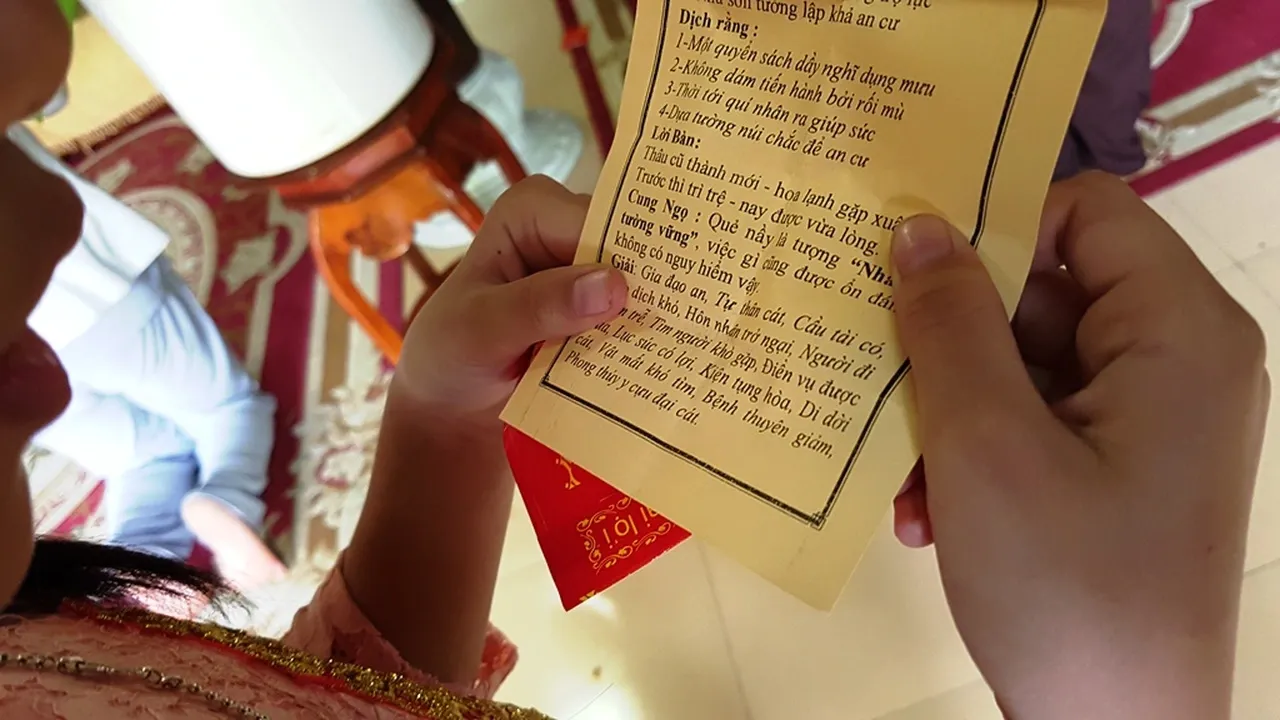 sơn tường lập khả an cư
Dịch rằng :
1-Một quyển sách dầy nghĩ dụng mưu
2-Không dám tiến hành bởi rối mù
3-Thời tới quí nhân ra giúp sức
4-Dựa tường núi chắc để an cư
Lời Bàn:
Thâu cũ thành mới - họa lạnh gặp
Trước thì trì trệ - nay được vừa lòng.
Cung Ngọ : Quẻ nầy là tượng “
tường vững”, việc gì cũng được ổn
không có nguy hiểm vậy.
Giải: Gia đạo an, Tự thân cát, Cầu tài có,
dịch khó, Hôn nhân trở ngại, Người đi
trễ, Tìm người khó gặp, Điền vụ được
Lục súc có lợi, Kiện tụng hòa, Di dời
cát, Vật mất khó tìm, Bệnh thuyên giảm,
Phong thủy y cựu đại cát.
lợi